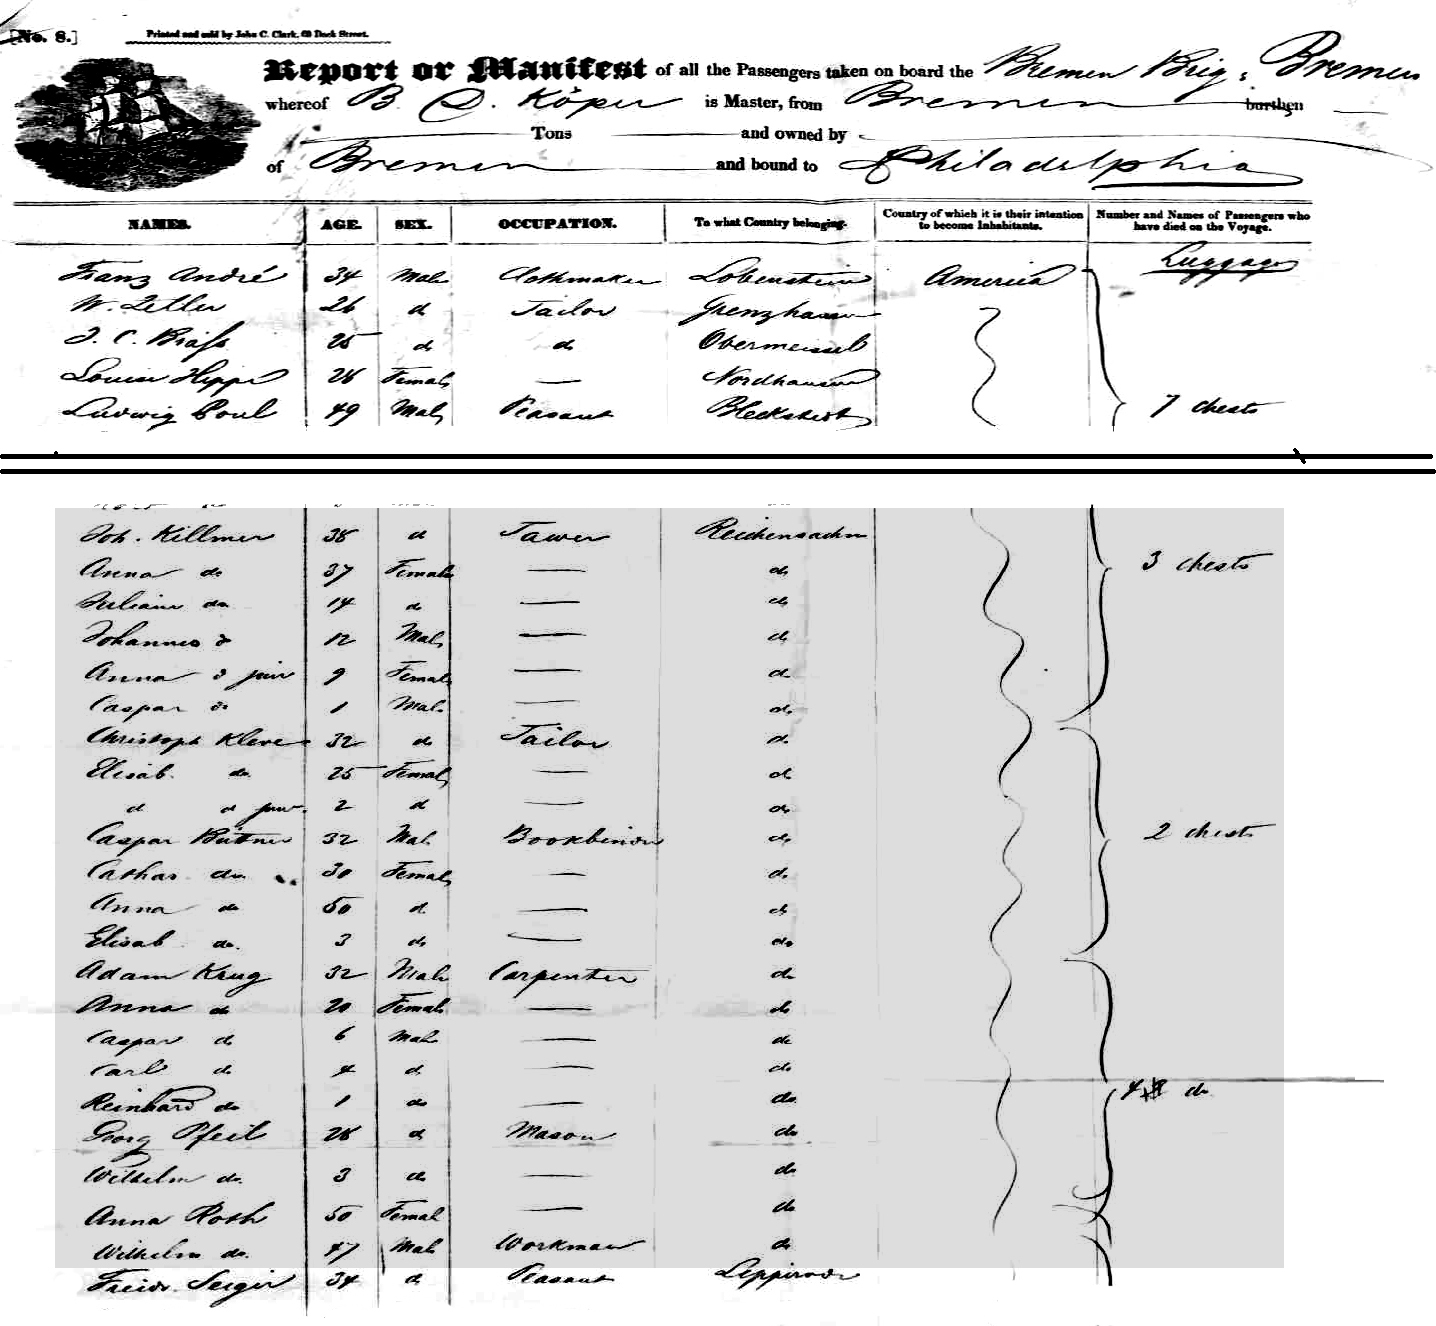 [No. 8.] Printed and sold by John C. Clark, 60 Dock Street.
Report or Manifest of all the Passengers taken on board the Bremen Brig, Bremen
whereof B. D. Köper is Master, from Bremen burthen
Tons and owned by
of Bremen and bound to Philadelphia
NAMES. AGE. SEX. OCCUPATION. To what Country belonging. Country of which it is their intention to become Inhabitants. Number and Names of Passengers who have died on the Voyage.
Luggage
Franz André 34 Male Clothmaker Lobenstein America
W. Zeller 26 d Tailor Grenzhausen
J. C. 25 do do Obermeissel
Louise Hippe 28 Female — Nordhausen
Ludwig Poul 49 Male Peasant Bleckstedt 7 chests
Joh. Killmer 38 d Tawer Reichensachsn
Anna do 37 Female — do 3 chests
Juliane do 14 do — do
Johannes do 12 Male — do
Anna d junr 9 Female — do
Caspar do 1 Male — do
Christoph Kleve 32 do Tailor do
Elisab. do 25 Female — do
d d junr. 2 d — do
Caspar Bütner 32 Male Bookbinder do 2 chests
Cathar. do 30 Female — do
Anna do 50 d — do
Elisab do. 3 do — do
Adam Krug 32 Male Carpenter do
Anna do 20 Female — do
Caspar do 6 Male — do
Carl do 4 d — do
Reinhard do 1 do — do 4 do
Georg Pfeil 28 d Mason do
Wilhelm do. 3 do — do
Anna Roth 50 Female — do
Wilhelm do. 47 Male Workman do
Friedr. Seegir 34 d Peasant Leppirode